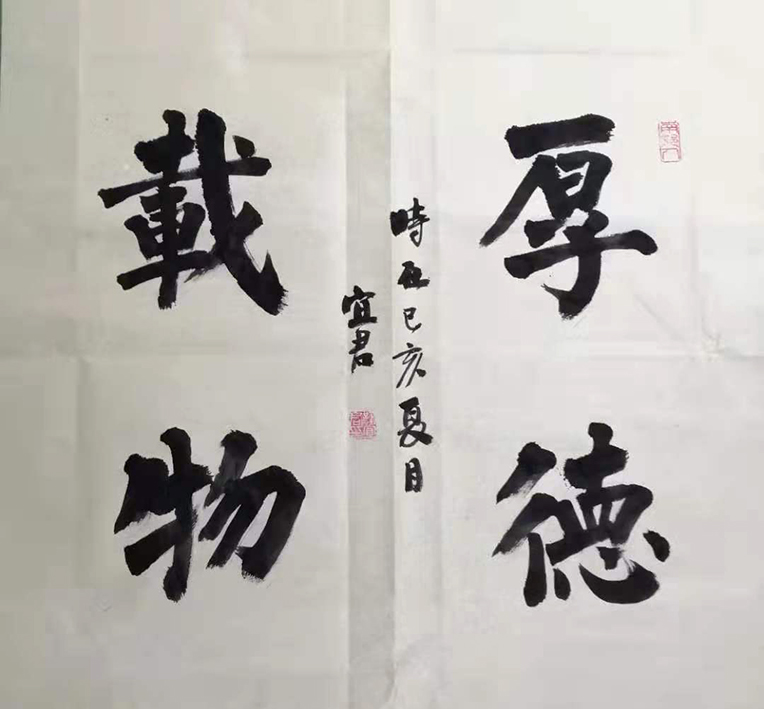 厚德
載物
時在己亥夏月
宜君